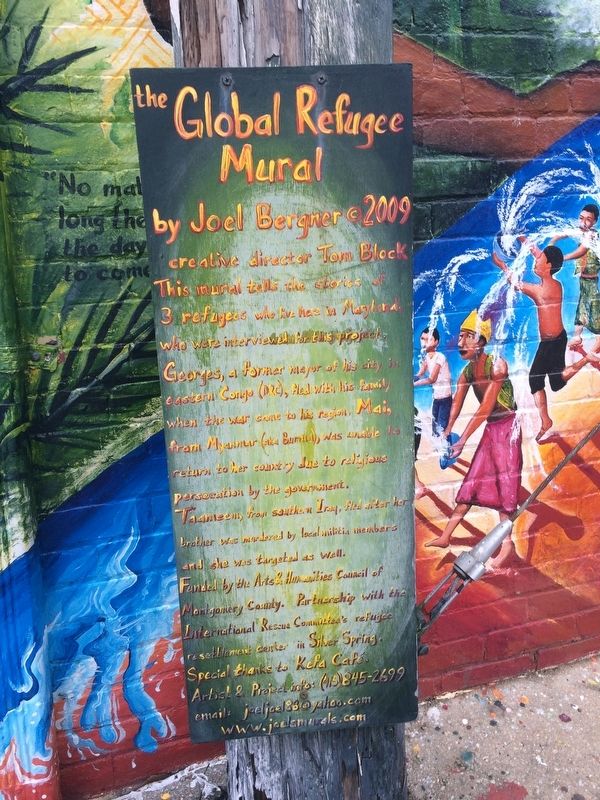 the Global Refugee
Mural
by Joel Bergner © 2009
creative director Tom Block
This mural tells the stories of
3 refugees who live here in Maryland,
who were interviewed for this project.
Georges, a former mayor of his city in
eastern Congo (DRC), fled with his family,
when the war came to his region. Mai,
from Myanmar (aka Burma), was unable to
return to her country due to religious
persecution by the government.
from southern Iraq, fled after her
brother was murdered by local militia members
and she was targeted as well.
Funded by the Arts & Humanities Council of
Montgomery County. Partnership with the
International Rescue Committee's refugee
resettlement center in Silver Spring.
Special thanks to Kefa Café.
Artist & Project info: 845-2699
email: joeljoel86@yahoo.com
www.joelsmurals.com
"No mat
long the
the day
to come